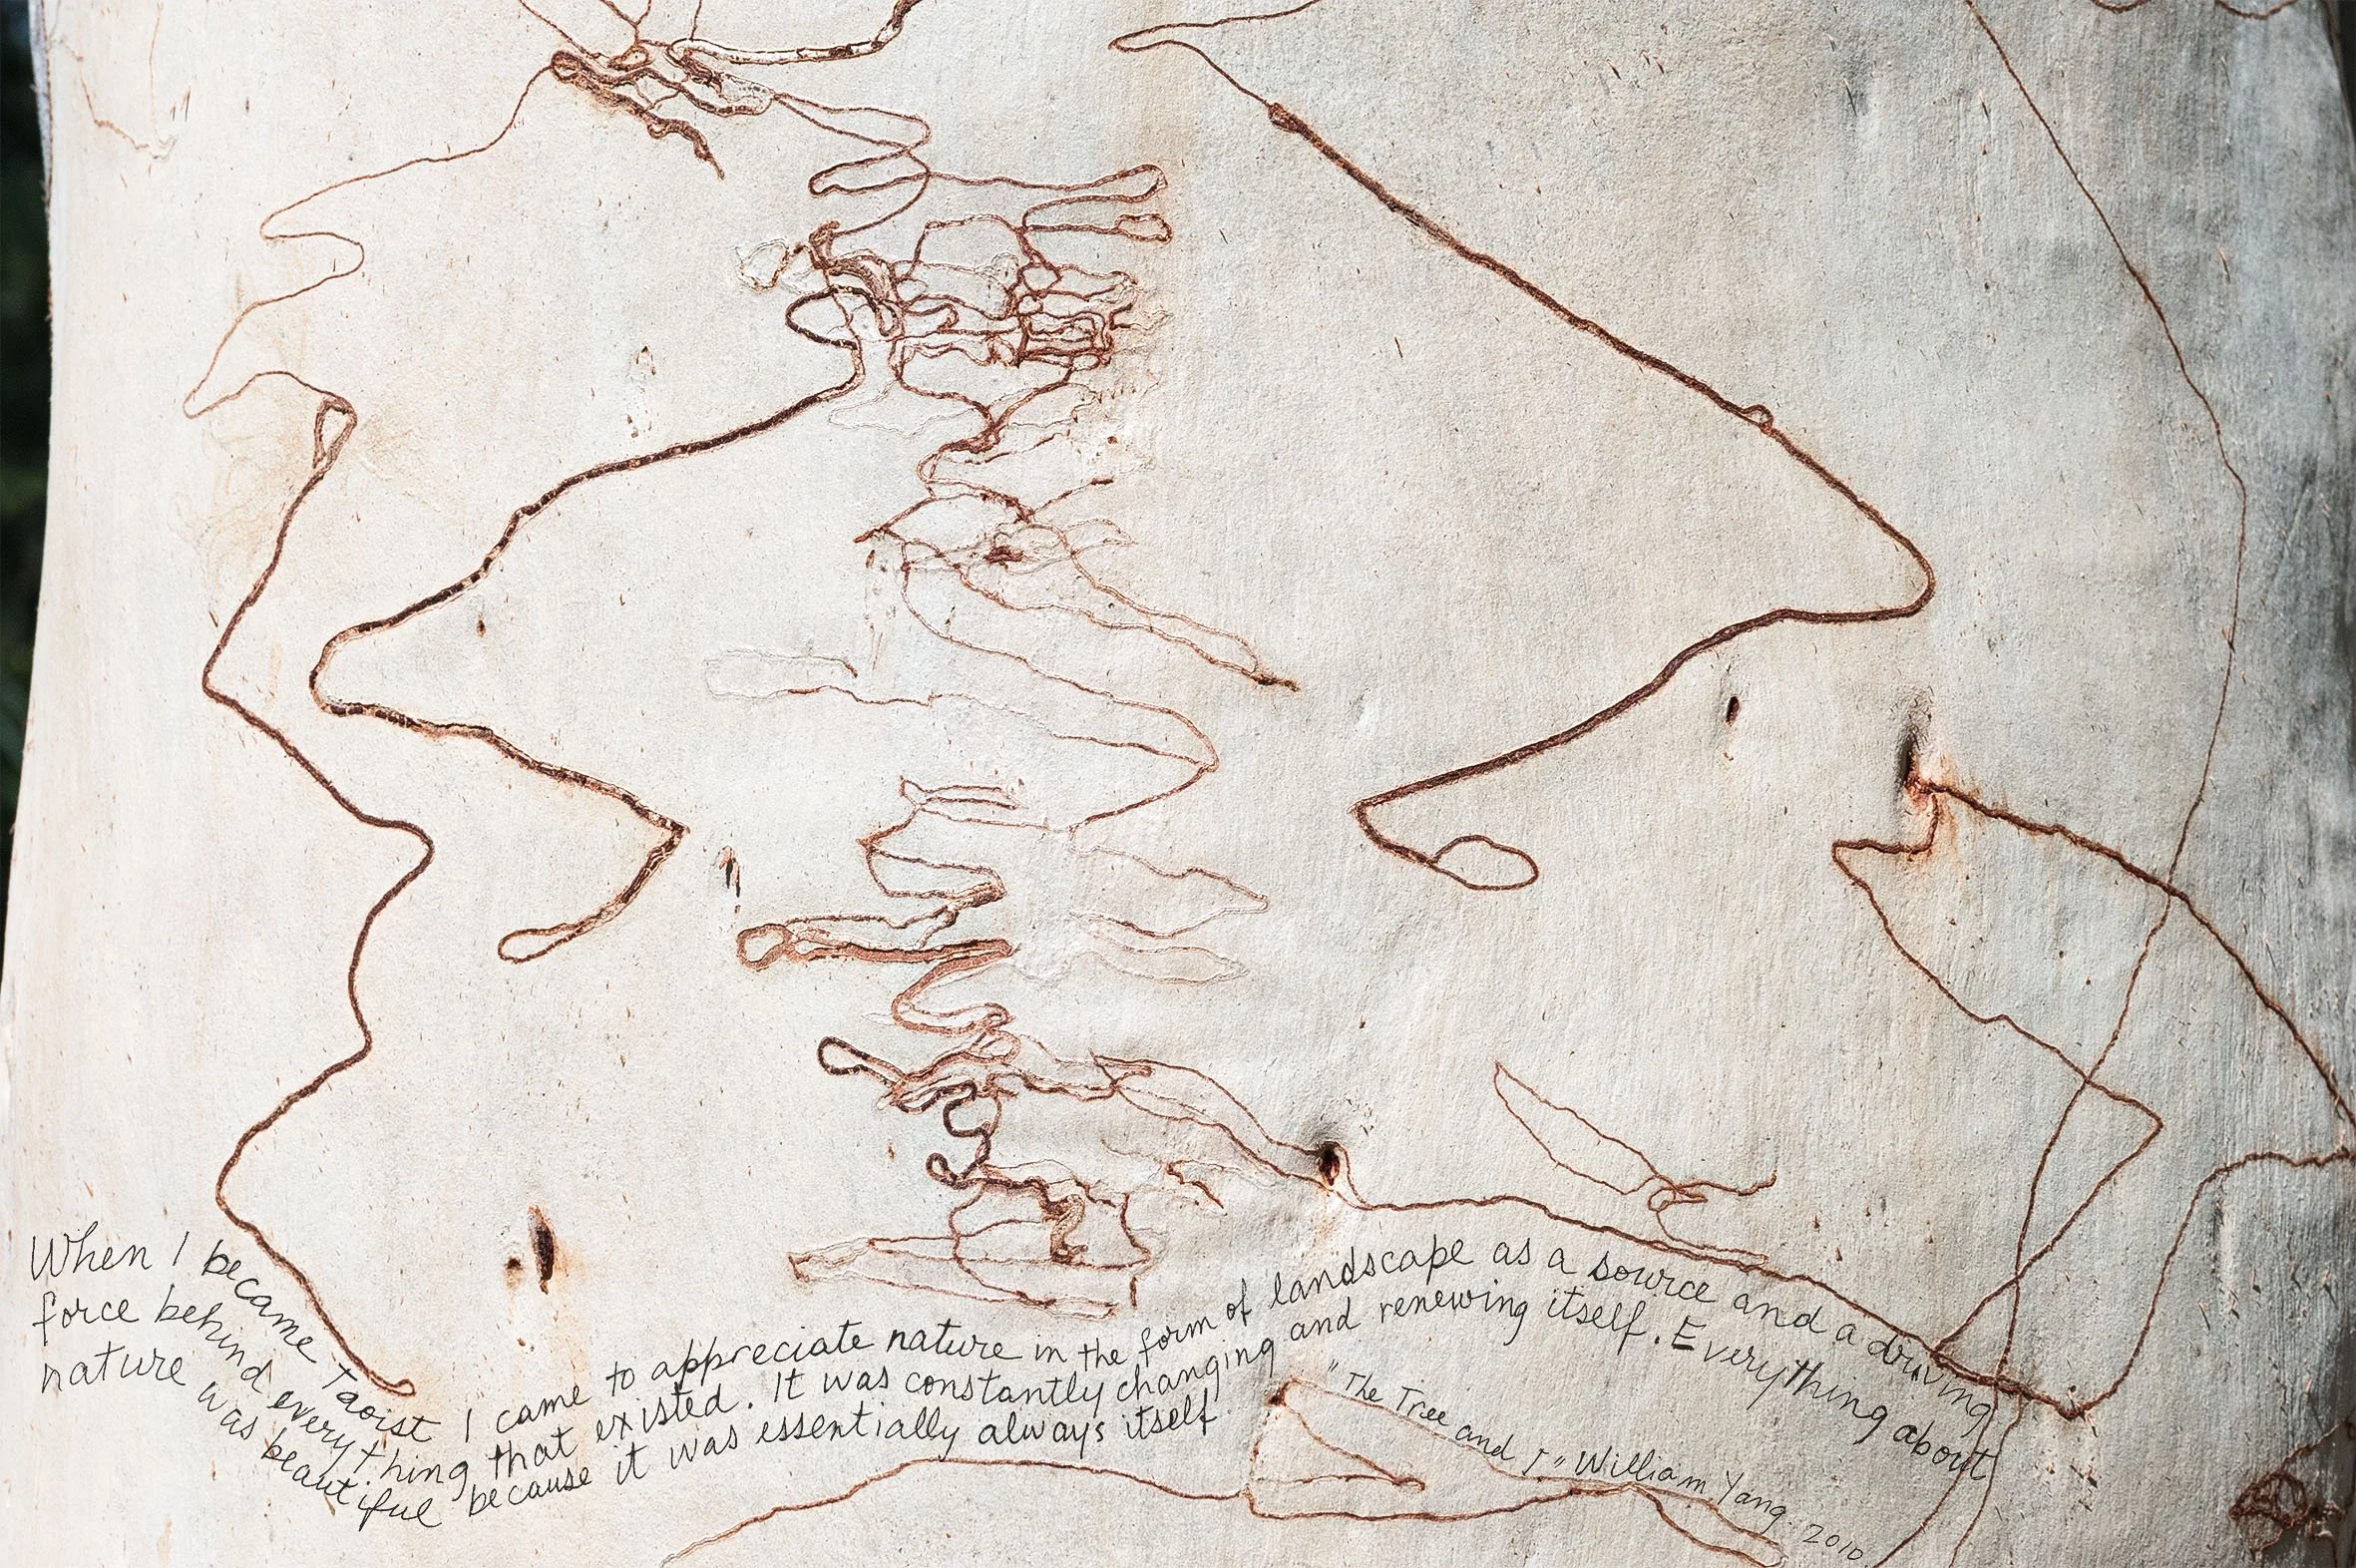 When I became Taoist I came to appreciate nature in the form of landscape as a source and a driving
force behind everything that existed. It was constantly changing and renewing itself. Everything about
nature was beautiful because it was essentially always itself.
"The Tree and I" William Yang. 2010.